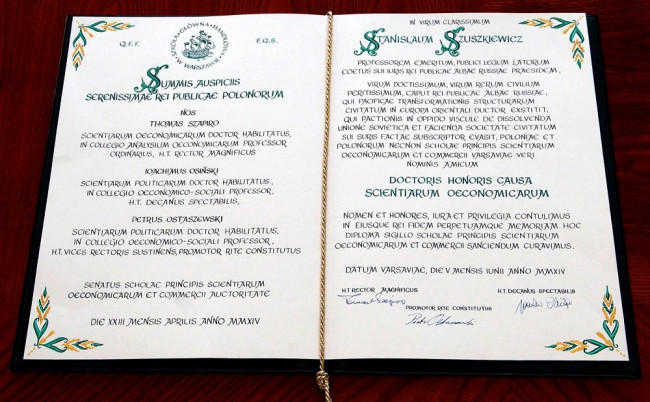 Q.F.F.
SZKOŁA · GŁÓWNA · HANDLOWA
W WARSZAWIE
F.Q.S.
SUMMIS AUSPICIIS
SERENISSIMAE REI PUBLICAE POLONORUM
NOS
THOMAS SZAPIRO
SCIENTIARUM OECONOMICARUM DOCTOR HABILITATUS,
IN COLLEGIO ANALYSIUM OECONOMICARUM PROFESSOR
ORDINARIUS, H.T. RECTOR MAGNIFICUS
IOACHIMUS OSIŃSKI
SCIENTIARUM POLITICARUM DOCTOR HABILITATUS,
IN COLLEGIO OECONOMICO-SOCIALI PROFESSOR,
H.T. DECANUS SPECTABILIS,
PETRUS OSTASZEWSKI
SCIENTIARUM POLITICARUM DOCTOR HABILITATUS,
IN COLLEGIO OECONOMICO-SOCIALI PROFESSOR,
H.T. VICES RECTORIS SUSTINENS, PROMOTOR RITE CONSTITUTUS
SENATUS SCHOLAE PRINCIPIS SCIENTIARUM
OECONOMICARUM ET COMMERCII AUCTORITATE
DIE XXIII MENSIS APRILIS ANNO MMXIV
IN VIRUM CLARISSIMUM
STANISLAUM SZUSZKIEWICZ
PROFESSOREM EMERITUM, PUBLICI LEGUM LATORUM
COETUS SUI IURIS REI PUBLICAE ALBAE RUSSIAE PRAESIDEM,
VIRUM DOCTISSIMUM, VIRUM RERUM CIVILIUM
PERITISSIMUM, CAPUT REI PUBLICAE ALBAE RUSSIAE,
QUI PACIFICAE TRANSFORMATIONIS STRUCTURARUM
CIVITATUM IN EUROPA ORIENTALI DUCTOR EXSTITIT,
QUI PACTIONIS IN OPPIDO VISCULE DE DISSOLVENDA
UNIONE SOVIETICA ET FACIENDA SOCIETATE CIVITATUM
SUI IURIS FACTAE SUBSCRIPTOR EVASIT, POLONIAE ET
POLONORUM NECNON SCHOLAE PRINCIPIS SCIENTIARUM
OECONOMICARUM ET COMMERCII VARSAVIAE VERI
NOMINIS AMICUM
DOCTORIS HONORIS CAUSA
SCIENTIARUM OECONOMICARUM
NOMEN ET HONORES, IURA ET PRIVILEGIA CONTULIMUS
IN EIUSQUE REI FIDEM PERPETUAMQUE MEMORIAM HOC
DIPLOMA SIGILLO SCHOLAE PRINCIPIS SCIENTIARUM
OECONOMICARUM ET COMMERCII SANCIENDUM CURAVIMUS.
DATUM VARSAVIAE, DIE V MENSIS IUNII ANNO MMXIV
H.T. RECTOR MAGNIFICUS
H.T. DECANUS SPECTABILIS
PROMOTOR RITE CONSTITUTUS